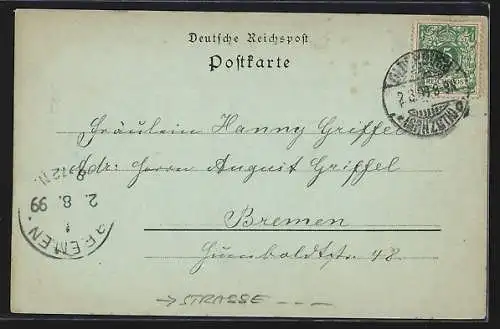 Deutsche Reichspost
Postkarte
2.8.99 8-9N
Fräulein Hanny Griffel
Adr: Herrn August Griffel
Bremen
Humboldtstr. 48
BREMEN.
1
2. 8. 99
8-12 N.
→ STRASSE